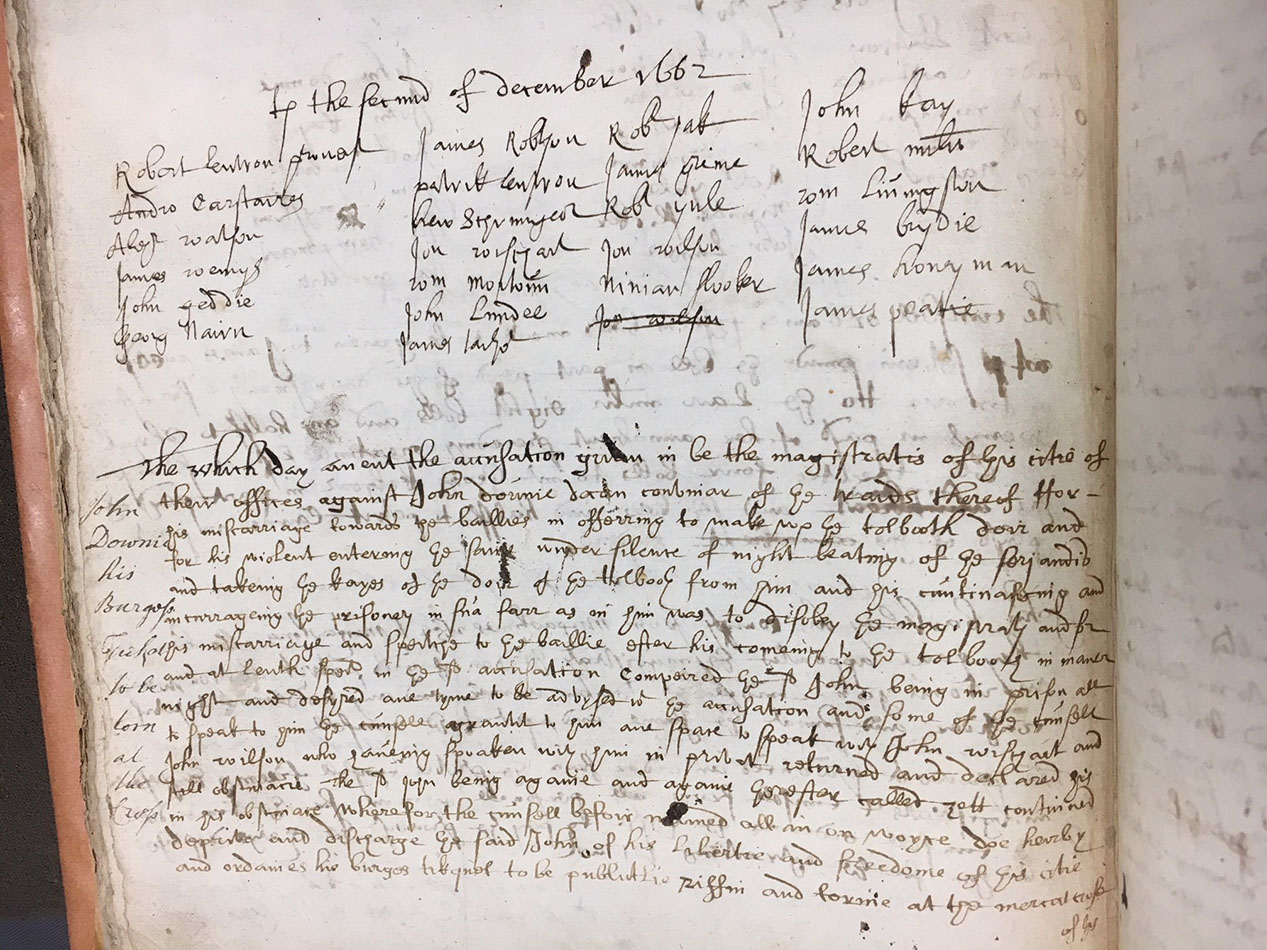 the second of december 1662
Robert Lentron provest
Andro Carstaires
Alexr watson
James wemys
John geddie
Georg Nairn
James Robson
patrik Lentron
hew Schrimgeor
Jon wischart
wom mortoun
John Lundee
James
Rob Jak
James grime
Rob yule
Jon wilson
Ninian
Jon wilson
John kay
Robert
wom Livingston
James bydie
James honeyman
James peatie
The which day anent the accusation given in be the magistratis of this citie of
their offices against John dounie deacon conviniar of the traids thereof ffor
his miscarriage towards the baillies in offerring to mak up the tolbooth doir and
for his violent entereing the same under silence of night beating of the serjandis
and takeing the keyes of the doir of the tolbooth from him and his and
incurrageing the prisoner in sua farr as in him was to disobey the magistrats and for
his miscarriage and speiche to the baillie efter his comeing to the tolbooth in maner
and at lenth spect in the sd accusation Compeired the sd John being in prison all
night and desyred ane tyme to be advysed wt the accusation and some of the cunsell
to speak to him the cunsell grantit to him ane space to speak with John wischart and
John wilson who haveing spoaken with him in privat returned and declared his
still obstinacie The sd John being againe and againe therefter called yett continued
in his obstinace Wherefor the cunsell befoir named all in on woyce doe heirby
deprive and discharge the said John of his libertie and freedome of this citie
and ordaines his burges tikquet to be publictlie riffin and torne at the mercat crose
of this
John
Downie
his
Burgess
Ticket
to be
torn
at
the
Cross